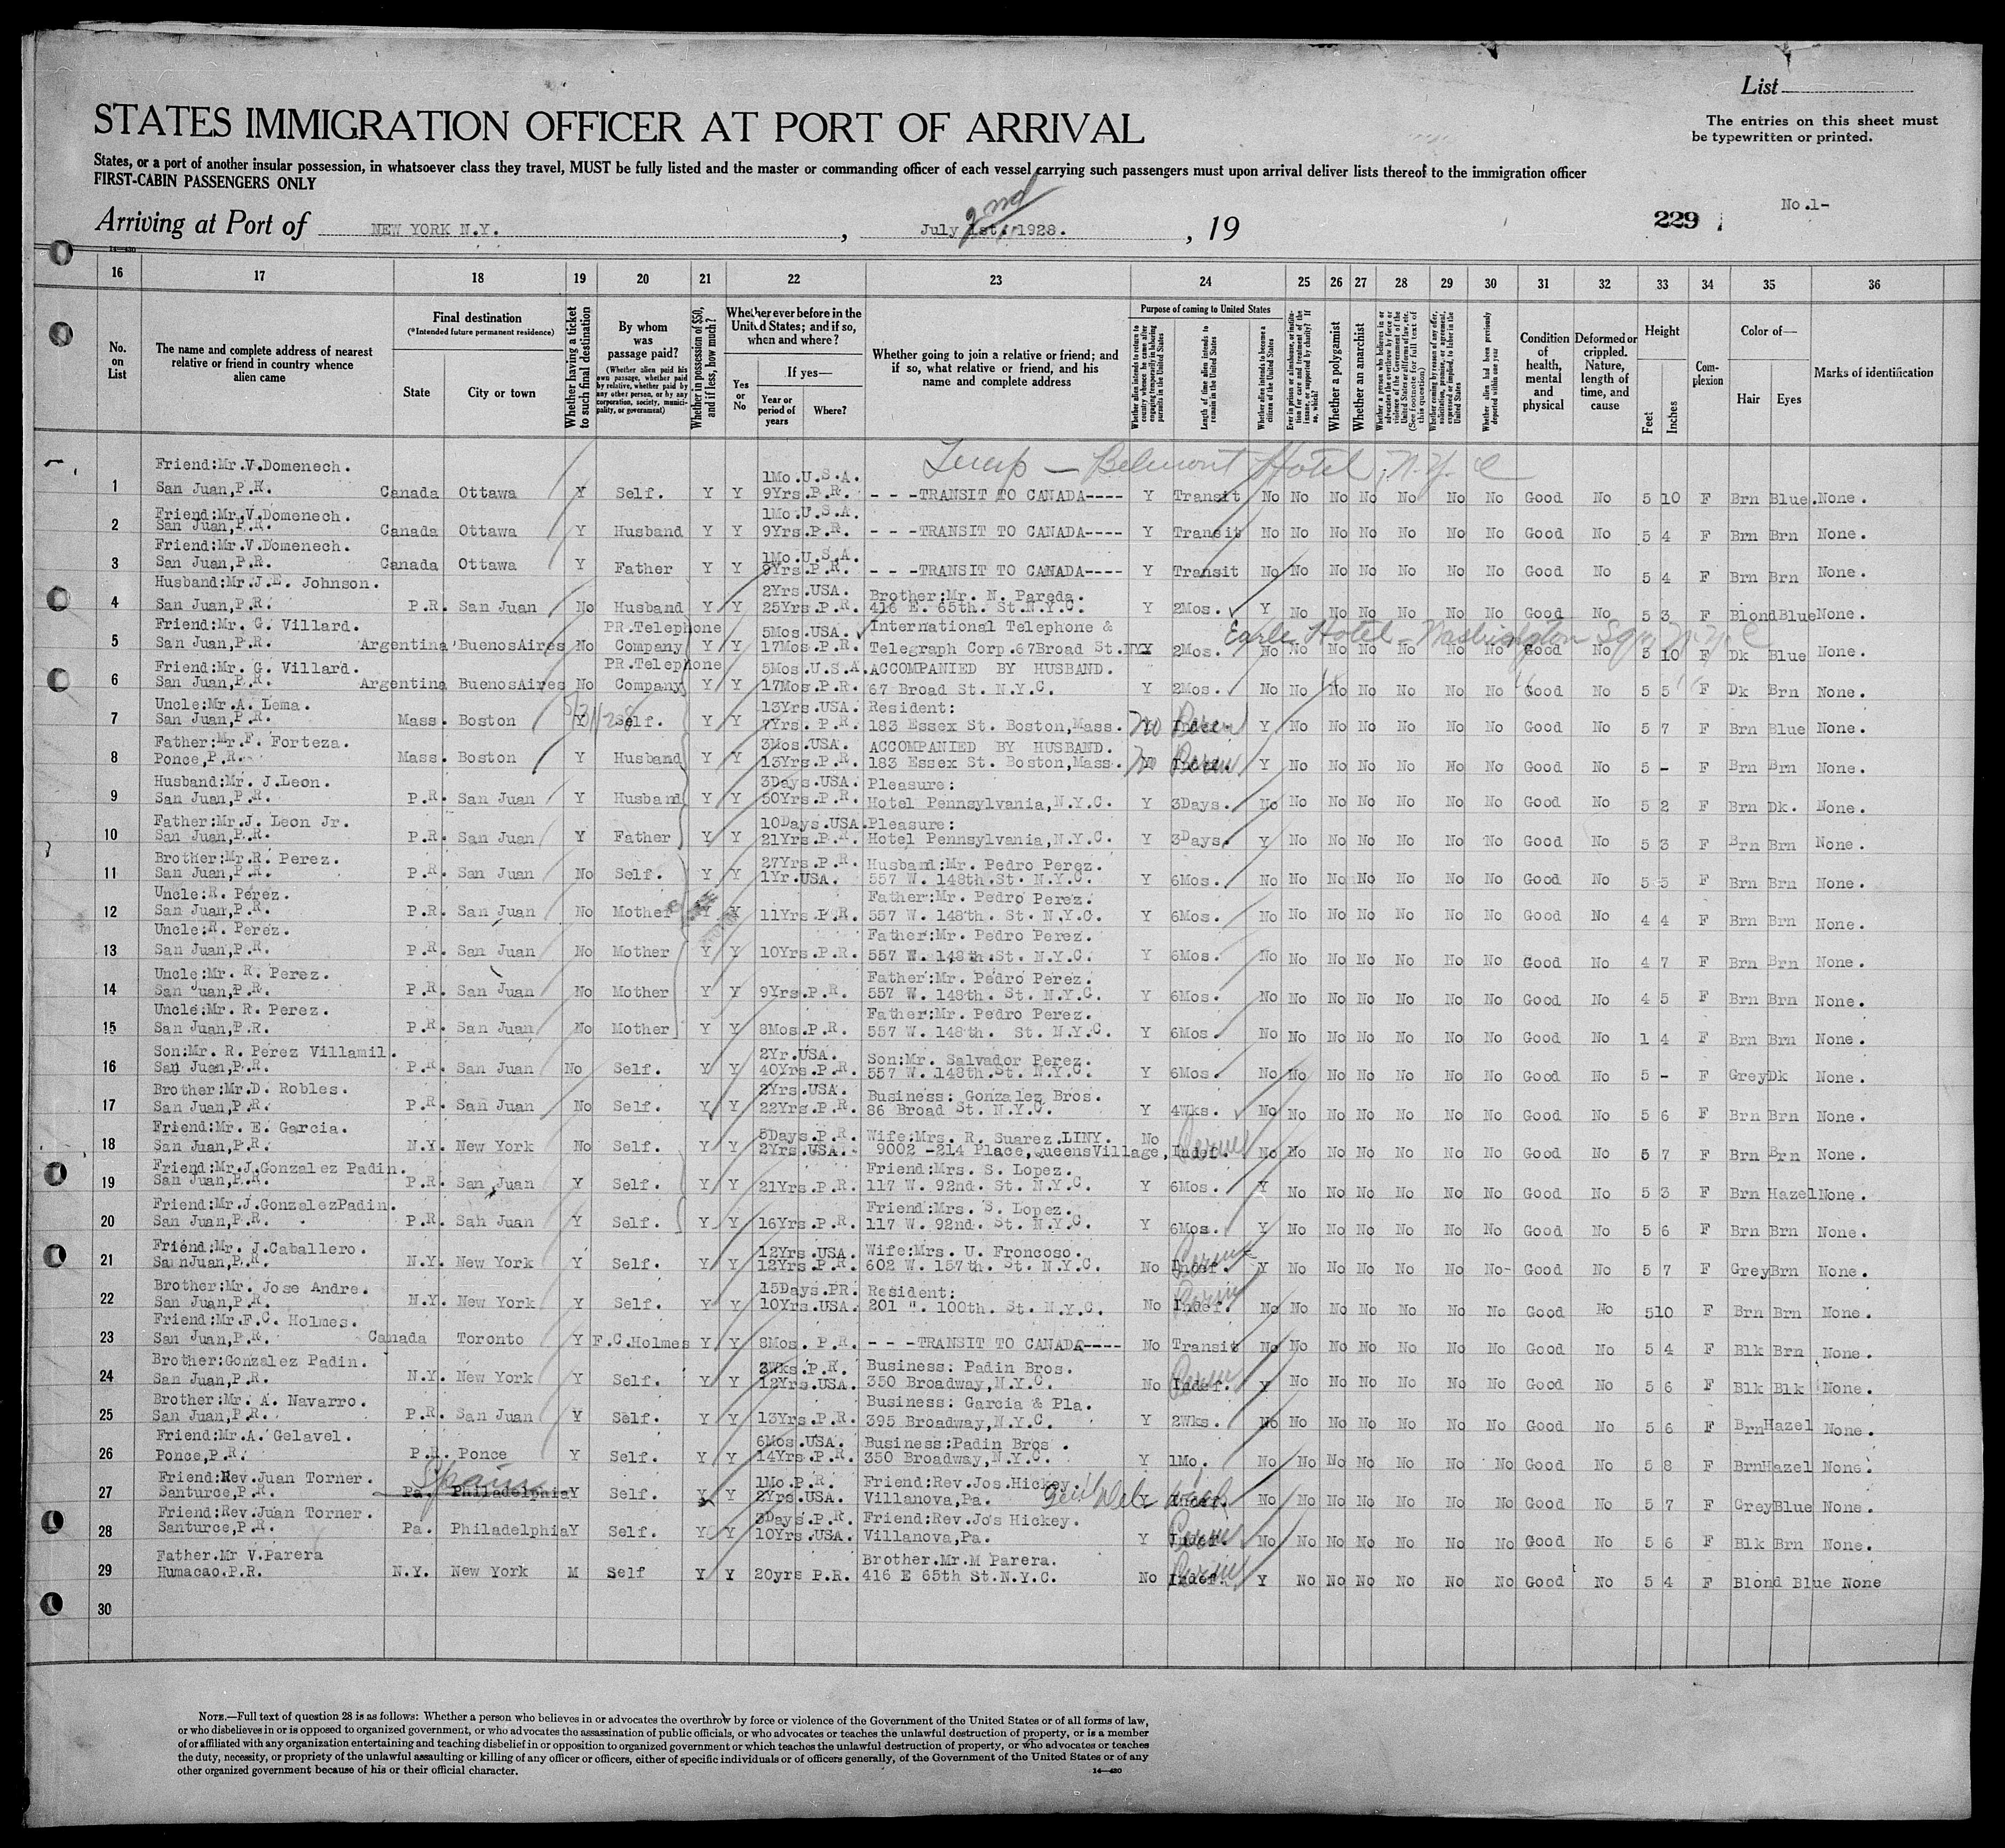 List
STATES IMMIGRATION OFFICER AT PORT OF ARRIVAL
The entries on this sheet must
be typewritten or printed.
States, or a port of another insular possession, in whatsoever class they travel, MUST be fully listed and the master or commanding officer of each vessel carrying such passengers must upon arrival deliver lists thereof to the immigration officer
FIRST-CABIN PASSENGERS ONLY
2nd
No.1-
Arriving at Port of NEW YORK N.Y. , July 1st. 1928. , 19 229
14-430
16 17 18 19 20 21 22 23 24 25 26 27 28 29 30 31 32 33 34 35 36
No. on List
The name and complete address of nearest relative or friend in country whence alien came
Final destination (*Intended future permanent residence)
State City or town
Whether having a ticket to such final destination
By whom was passage paid?
(Whether alien paid his own passage, whether paid by relative, whether paid by any other person, or by any corporation, society, municipality, or government)
Whether in possession of $50, and if less, how much?
Whether ever before in the United States; and if so, when and where?
Yes or No
If yes—
Year or period of years Where?
Whether going to join a relative or friend; and if so, what relative or friend, and his name and complete address
Purpose of coming to United States
Whether alien intends to return to country whence he came after engaging temporarily in laboring pursuits in the United States
Length of time alien intends to remain in the United States
Whether alien intends to become a citizen of the United States
Ever in prison or almshouse, or institution for care and treatment of the insane, or supported by charity? If so, which?
Whether a polygamist
Whether an anarchist
Whether a person who believes in or advocates the overthrow by force or violence of the Government of the United States or all forms of law, etc. (See footnote for full text of this question)
Whether coming by reason of any offer, solicitation, promise, or agreement, expressed or implied, to labor in the United States
Whether alien had been previously deported within one year
Condition of health, mental and physical
Deformed or crippled. Nature, length of time, and cause
Height
Feet Inches
Complexion
Color of—
Hair Eyes
Marks of identification
Belmont Hotel, N.Y.C
1 Friend:Mr.V.Domenech. San Juan,P.R. Canada Ottawa Y Self. Y Y 1Mo.U.S.A. 9Yrs.P.R. - - -TRANSIT TO CANADA---- Y Transit No No No No No No No Good No 5 10 F Brn Blue. None.
2 Friend:Mr.V.Domenech. San Juan,P.R. Canada Ottawa Y Husband Y Y 1Mo.U.S.A. 9Yrs.P.R. - - -TRANSIT TO CANADA---- Y Transit No No No No No No No Good No 5 4 F Brn Brn None.
3 Friend:Mr.V.Domenech. San Juan,P.R. Canada Ottawa Y Father Y Y 1Mo.U.S.A. 9Yrs.P.R. - - -TRANSIT TO CANADA---- Y Transit No No No No No No No Good No 5 4 F Brn Brn None.
4 Husband:Mr.J.E. Johnson. San Juan,P.R. P.R. San Juan No Husband Y Y 2Yrs.USA. 25Yrs.P.R. Brother:Mr. N. Pareda. 416 E. 65th. St.N.Y.C. Y 2Mos. Y No No No No No No Good No 5 3 F Blond Blue None.
Earle Hotel - Washington Sq. N.Y.C
5 Friend:Mr. G. Villard. San Juan,P.R. Argentina BuenosAires No PR.Telephone Company Y Y 5Mos.USA. 17Mos.P.R. International Telephone & Telegraph Corp.67Broad St.NY Y 2Mos. No No No No No No No Good No 5 10 F Dk Blue None.
6 Friend:Mr. G. Villard. San Juan,P.R. Argentina BuenosAires No PR.Telephone Company Y Y 5Mos.U.S.A. 17Mos.P.R. ACCOMPANIED BY HUSBAND. 67 Broad St. N.Y.C. Y 2Mos. No No No No No No No Good No 5 5 F Dk Brn None.
7 Uncle:Mr.A. Lema. San Juan,P.R. Mass. Boston Y 5/31/28 Self. Y Y 13Yrs.USA. 7Yrs. P.R. Resident: 183 Essex St. Boston,Mass. No Indef. Y No No No No No No Good No 5 7 F Brn Blue None.
8 Father:Mr.F. Forteza. Ponce,P.R. Mass. Boston Y Husband Y Y 3Mos.USA. 13Yrs.P.R. ACCOMPANIED BY HUSBAND. 183 Essex St. Boston,Mass. No Indef. Y No No No No No No Good No 5 - F Brn Brn None.
9 Husband:Mr. J.Leon. San Juan,P.R. P.R. San Juan Y Husband Y Y 3Days.USA. 50Yrs.P.R. Pleasure: Hotel Pennsylvania,N.Y.C. Y 3Days. No No No No No No No Good No 5 2 F Brn Dk. None.
10 Father:Mr.J. Leon Jr. San Juan,P.R. P.R. San Juan Y Father Y Y 10Days.USA. 21Yrs.P.R. Pleasure: Hotel Pennsylvania,N.Y.C. Y 3Days. Y No No No No No No Good No 5 3 F Brn Brn None.
11 Brother:Mr.R. Perez. San Juan,P.R. P.R. San Juan No Self. Y Y 27Yrs.P.R. 1Yr.USA. Husband:Mr. Pedro Perez. 557 W. 148th.St. N.Y.C. Y 6Mos. No No No No No No No Good No 5 5 F Brn Brn None.
12 Uncle:R. Perez. San Juan,P.R. P.R. San Juan No Mother Y Y 11Yrs.P.R. Father:Mr. Pedro Perez. 557 W. 148th. St. N.Y.C. Y 6Mos. No No No No No No No Good No 4 4 F Brn Brn None.
13 Uncle:R. Perez. San Juan,P.R. P.R. San Juan No Mother Y Y 10Yrs.P.R. Father:Mr. Pedro Perez. 557 W. 148th.St. N.Y.C. Y 6Mos. No No No No No No No Good No 4 7 F Brn Brn None.
14 Uncle:Mr. R. Perez. San Juan,P.R. P.R. San Juan No Mother Y Y 9Yrs.P.R. Father:Mr. Pedro Perez. 557 W. 148th. St. N.Y.C. Y 6Mos. No No No No No No No Good No 4 5 F Brn Brn None.
15 Uncle:Mr. R. Perez. San Juan,P.R. P.R. San Juan No Mother Y Y 8Mos.P.R. Father:Mr. Pedro Perez. 557 W. 148th. St. N.Y.C. Y 6Mos. No No No No No No No Good No 1 4 F Brn Brn None.
16 Son:Mr. R. Perez Villamil. San Juan,P.R. P.R. San Juan No Self. Y Y 2Yr.USA. 40Yrs.P.R. Son:Mr. Salvador Perez. 557 W. 148th.St. N.Y.C. Y 6Mos. No No No No No No No Good No 5 - F Grey Dk None.
17 Brother:Mr.D. Robles. San Juan,P.R. P.R. San Juan No Self. Y Y 2Yrs.USA. 22Yrs.P.R. Business: Gonzalez Bros. 86 Broad St. N.Y.C. Y 4Wks. No No No No No No No Good No 5 6 F Brn Brn None.
18 Friend:Mr. E. Garcia. San Juan,P.R. N.Y. New York No Self. Y Y 5Days.P.R. 2Yrs.USA. Wife:Mrs. R. Suarez.LINY. 9002 -214 Place,QueensVillage, No Indef. No No No No No No No Good No 5 7 F Brn Brn None.
19 Friend:Mr.J.Gonzalez Padin. San Juan,P.R. P.R. San Juan Y Self. Y Y 21Yrs.P.R. Friend:Mrs. S. Lopez. 117 W. 92nd. St. N.Y.C. Y 6Mos. Y No No No No No No Good No 5 3 F Brn Hazel None.
20 Friend:Mr.J.GonzalezPadin. San Juan,P.R. P.R. San Juan Y Self. Y Y 16Yrs.P.R. Friend:Mrs. S. Lopez. 117 W. 92nd. St. N.Y.C. Y 6Mos. Y No No No No No No Good No 5 6 F Brn Brn None.
21 Friend:Mr. J.Caballero. SanJuan,P.R. N.Y. New York Y Self. Y Y 12Yrs.USA. 12Yrs.P.R. Wife:Mrs. U. Froncoso. 602 W. 157th. St. N.Y.C. No Indef. Perm Y No No No No No No- Good No 5 7 F Grey Brn None.
22 Brother:Mr. Jose Andre. San Juan,P.R. N.Y. New York Y Self. Y Y 15Days.PR. 10Yrs.USA. Resident: 201 ". 100th. St. N.Y.C. No Indef. Perm No No No No No No No Good No 5 10 F Brn Brn None.
23 Friend:Mr.F.C. Holmes. San Juan,P.R. Canada Toronto Y F.C.Holmes Y Y 8Mos. P.R. - - -TRANSIT TO CANADA---- No Transit No No No No No No No Good No 5 4 F Blk Brn None.
24 Brother:Gonzalez Padin. San Juan,P.R. N.Y. New York Y Self. Y Y 3Wks.P.R. 12Yrs.USA. Business: Padin Bros. 350 Broadway,N.Y.C. No Indef. Perm Y No No No No No No Good No 5 6 F Blk Blk None.
25 Brother:Mr. A. Navarro. San Juan,P.R. P.R. San Juan Y Self. Y Y 13Yrs.P.R. Business: Garcia & Pla. 395 Broadway,N.Y.C. Y 2Wks. No No No No No No No Good No 5 6 F Brn Hazel None.
26 Friend:Mr.A. Gelavel. Ponce,P.R. P.R. Ponce Y Self. Y Y 6Mos.USA. 14Yrs.P.R. Business:Padin Bros. 350 Broadway,N.Y.C. Y 1Mo. No No No No No No No Good No 5 8 F Brn Hazel None.
27 Friend:Rev.Juan Torner. Santurce,P.R. Spain Pa. Philadelphia Y Self. Y Y 1Mo.P.R. 2Yrs.USA. Friend:Rev.Jos.Hickey. Villanova,Pa. Y Indef. No No No No No No No Good No 5 7 F Grey Blue None.
28 Friend:Rev.Juan Torner. Santurce,P.R. Pa. Philadelphia Y Self. Y Y 3Days.P.R. 10Yrs.USA. Friend:Rev.Jos Hickey. Villanova,Pa. Y Indef. Perm No No No No No No No Good No 5 6 F Blk Brn None.
29 Father.Mr V.Parera Humacao.P.R. N.Y. New York M Self Y Y 20yrs P.R. Brother.Mr.M Parera. 416 E 65th St.N.Y.C. No Indef. Perm Y No No No No No No Good No 5 4 F Blond Blue None
30
NOTE.—Full text of question 28 is as follows: Whether a person who believes in or advocates the overthrow by force or violence of the Government of the United States or of all forms of law,
or who disbelieves in or is opposed to organized government, or who advocates the assassination of public officials, or who advocates or teaches the unlawful destruction of property, or is a member
of or affiliated with any organization entertaining and teaching disbelief in or opposition to organized government or which teaches the unlawful destruction of property, or who advocates or teaches
the duty, necessity, or propriety of the unlawful assaulting or killing of any officer or officers, either of specific individuals or of officers generally, of the Government of the United States or of any
other organized government because of his or their official character.
14-430